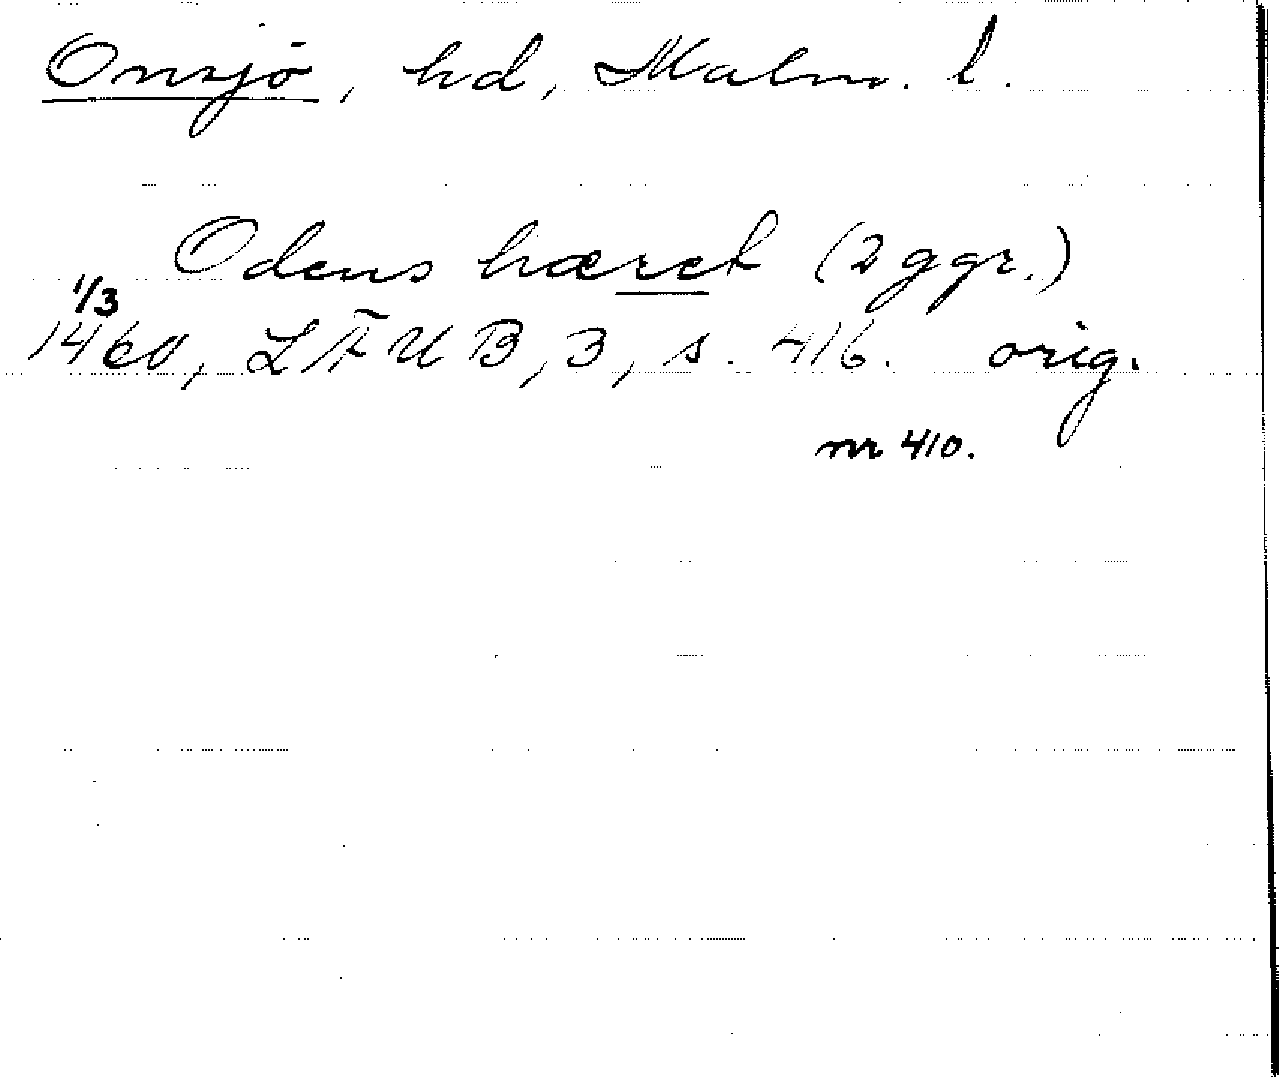 Onsjö, hd, Malm. l.
Odens hæret (2 ggr.)
1/3
1460, LÄUB, 3, s. 416. orig.
nr 410.